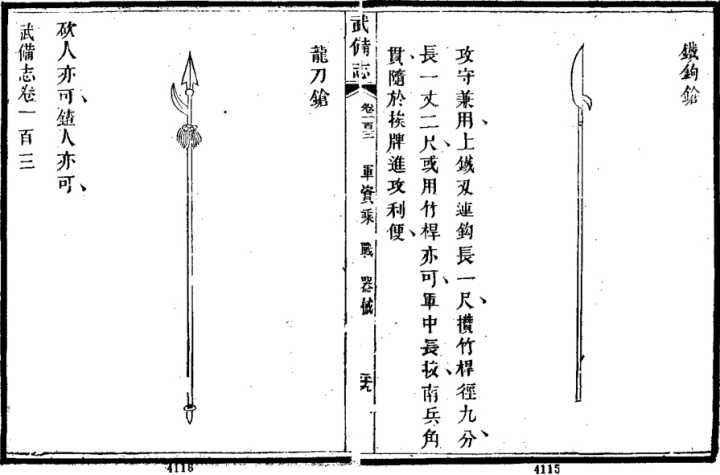 鐵鉤鎗
攻守兼用、上鐵刃連鈎長一尺、攢竹桿徑九分、
長一丈二尺、或用竹桿亦可、軍中長技、南兵角
貫、隨於挨牌進攻利便、
武備志 卷一百三 軍資乘 戰 器械
龍刀鎗
砍人亦可、人亦可、
武備志卷一百三
4115
4116